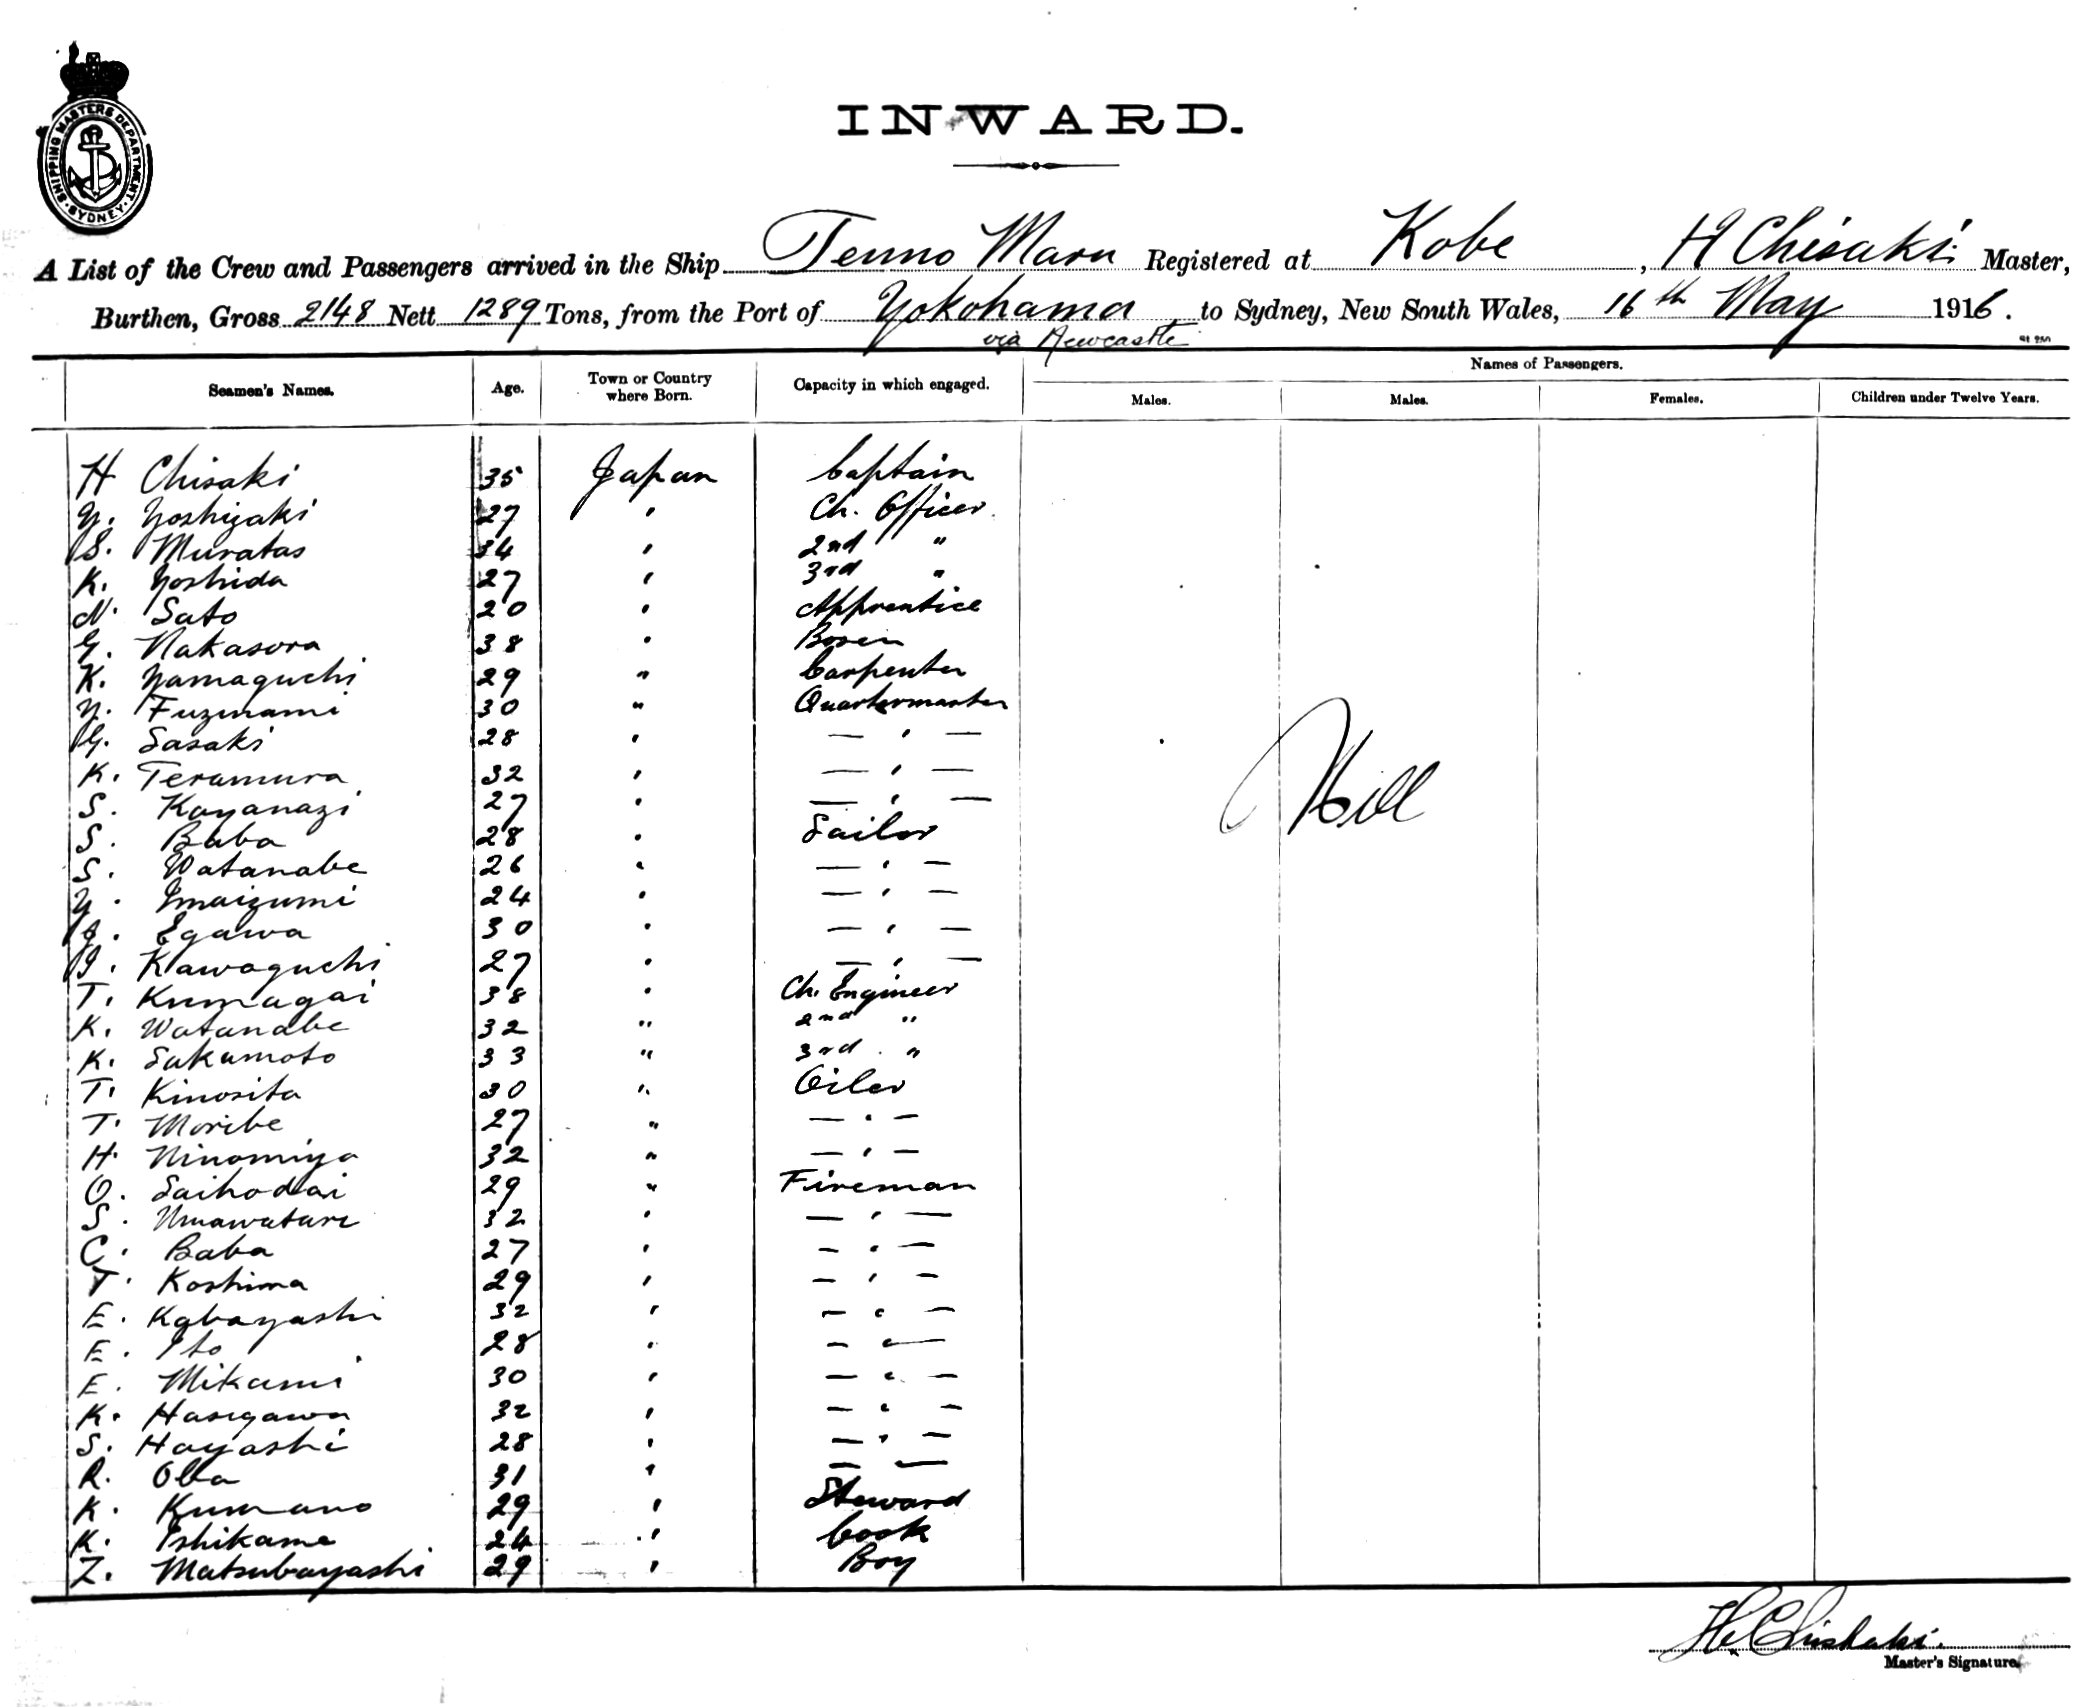 SHIPPING MASTERS DEPARTMENT. SYDNEY.
INWARD.
A List of the Crew and Passengers arrived in the Ship Tenno Maru Registered at Kobe, H Chisaki Master,
Burthen, Gross 2148 Nett 1289 Tons, from the Port of Yokohama to Sydney, New South Wales, 16th May 1916.
via Newcastle
Names of Passengers.
Seamen's Names. Age. Town or Country where Born. Capacity in which engaged. Males. Males. Females. Children under Twelve Years.
H Chisaki 35 Japan Captain
Y. Yoshizaki 27 " Ch. Officer
S. Muratas 34 " 2nd "
K. Yoshida 27 " 3rd "
N. Sato 20 " Apprentice
G. Nakasora 38 " Bosen
K. Yamaguchi 29 " Carpenter
Y. Fuzinami 30 " Quartermaster
G. Sasaki 28 " — " —
K. Teramura 32 " — " —
S. Koyanazi 27 " — " —
Nill
S. Baba 28 " Sailor
S. Watanabe 26 " — " —
Y. Imaizumi 24 " — " —
J. Egawa 30 " — " —
I. Kawaguchi 27 " — " —
T. Kumagai 38 " Ch. Engineer
K. Watanabe 32 " 2nd "
K. Sakamoto 33 " 3rd "
T. Kinosita 30 " Oiler
T. Moribe 27 " — " —
H. Ninomiya 32 " — " —
O. Saihodai 29 " Fireman
S. Umawatari 32 " — " —
C. Baba 27 " — " —
T. Koshima 29 " — " —
E. Kobayashi 32 " — " —
E. Ito 28 " — " —
E. Mikami 30 " — " —
K. Hasegawa 32 " — " —
S. Hayashi 28 " — " —
R. Oba 31 " — —
K. Kumano 29 " Steward
K. Ishikame 24 " Cook
Z. Matsubayashi 29 " Boy
H. Chishaki.
Master's Signature.